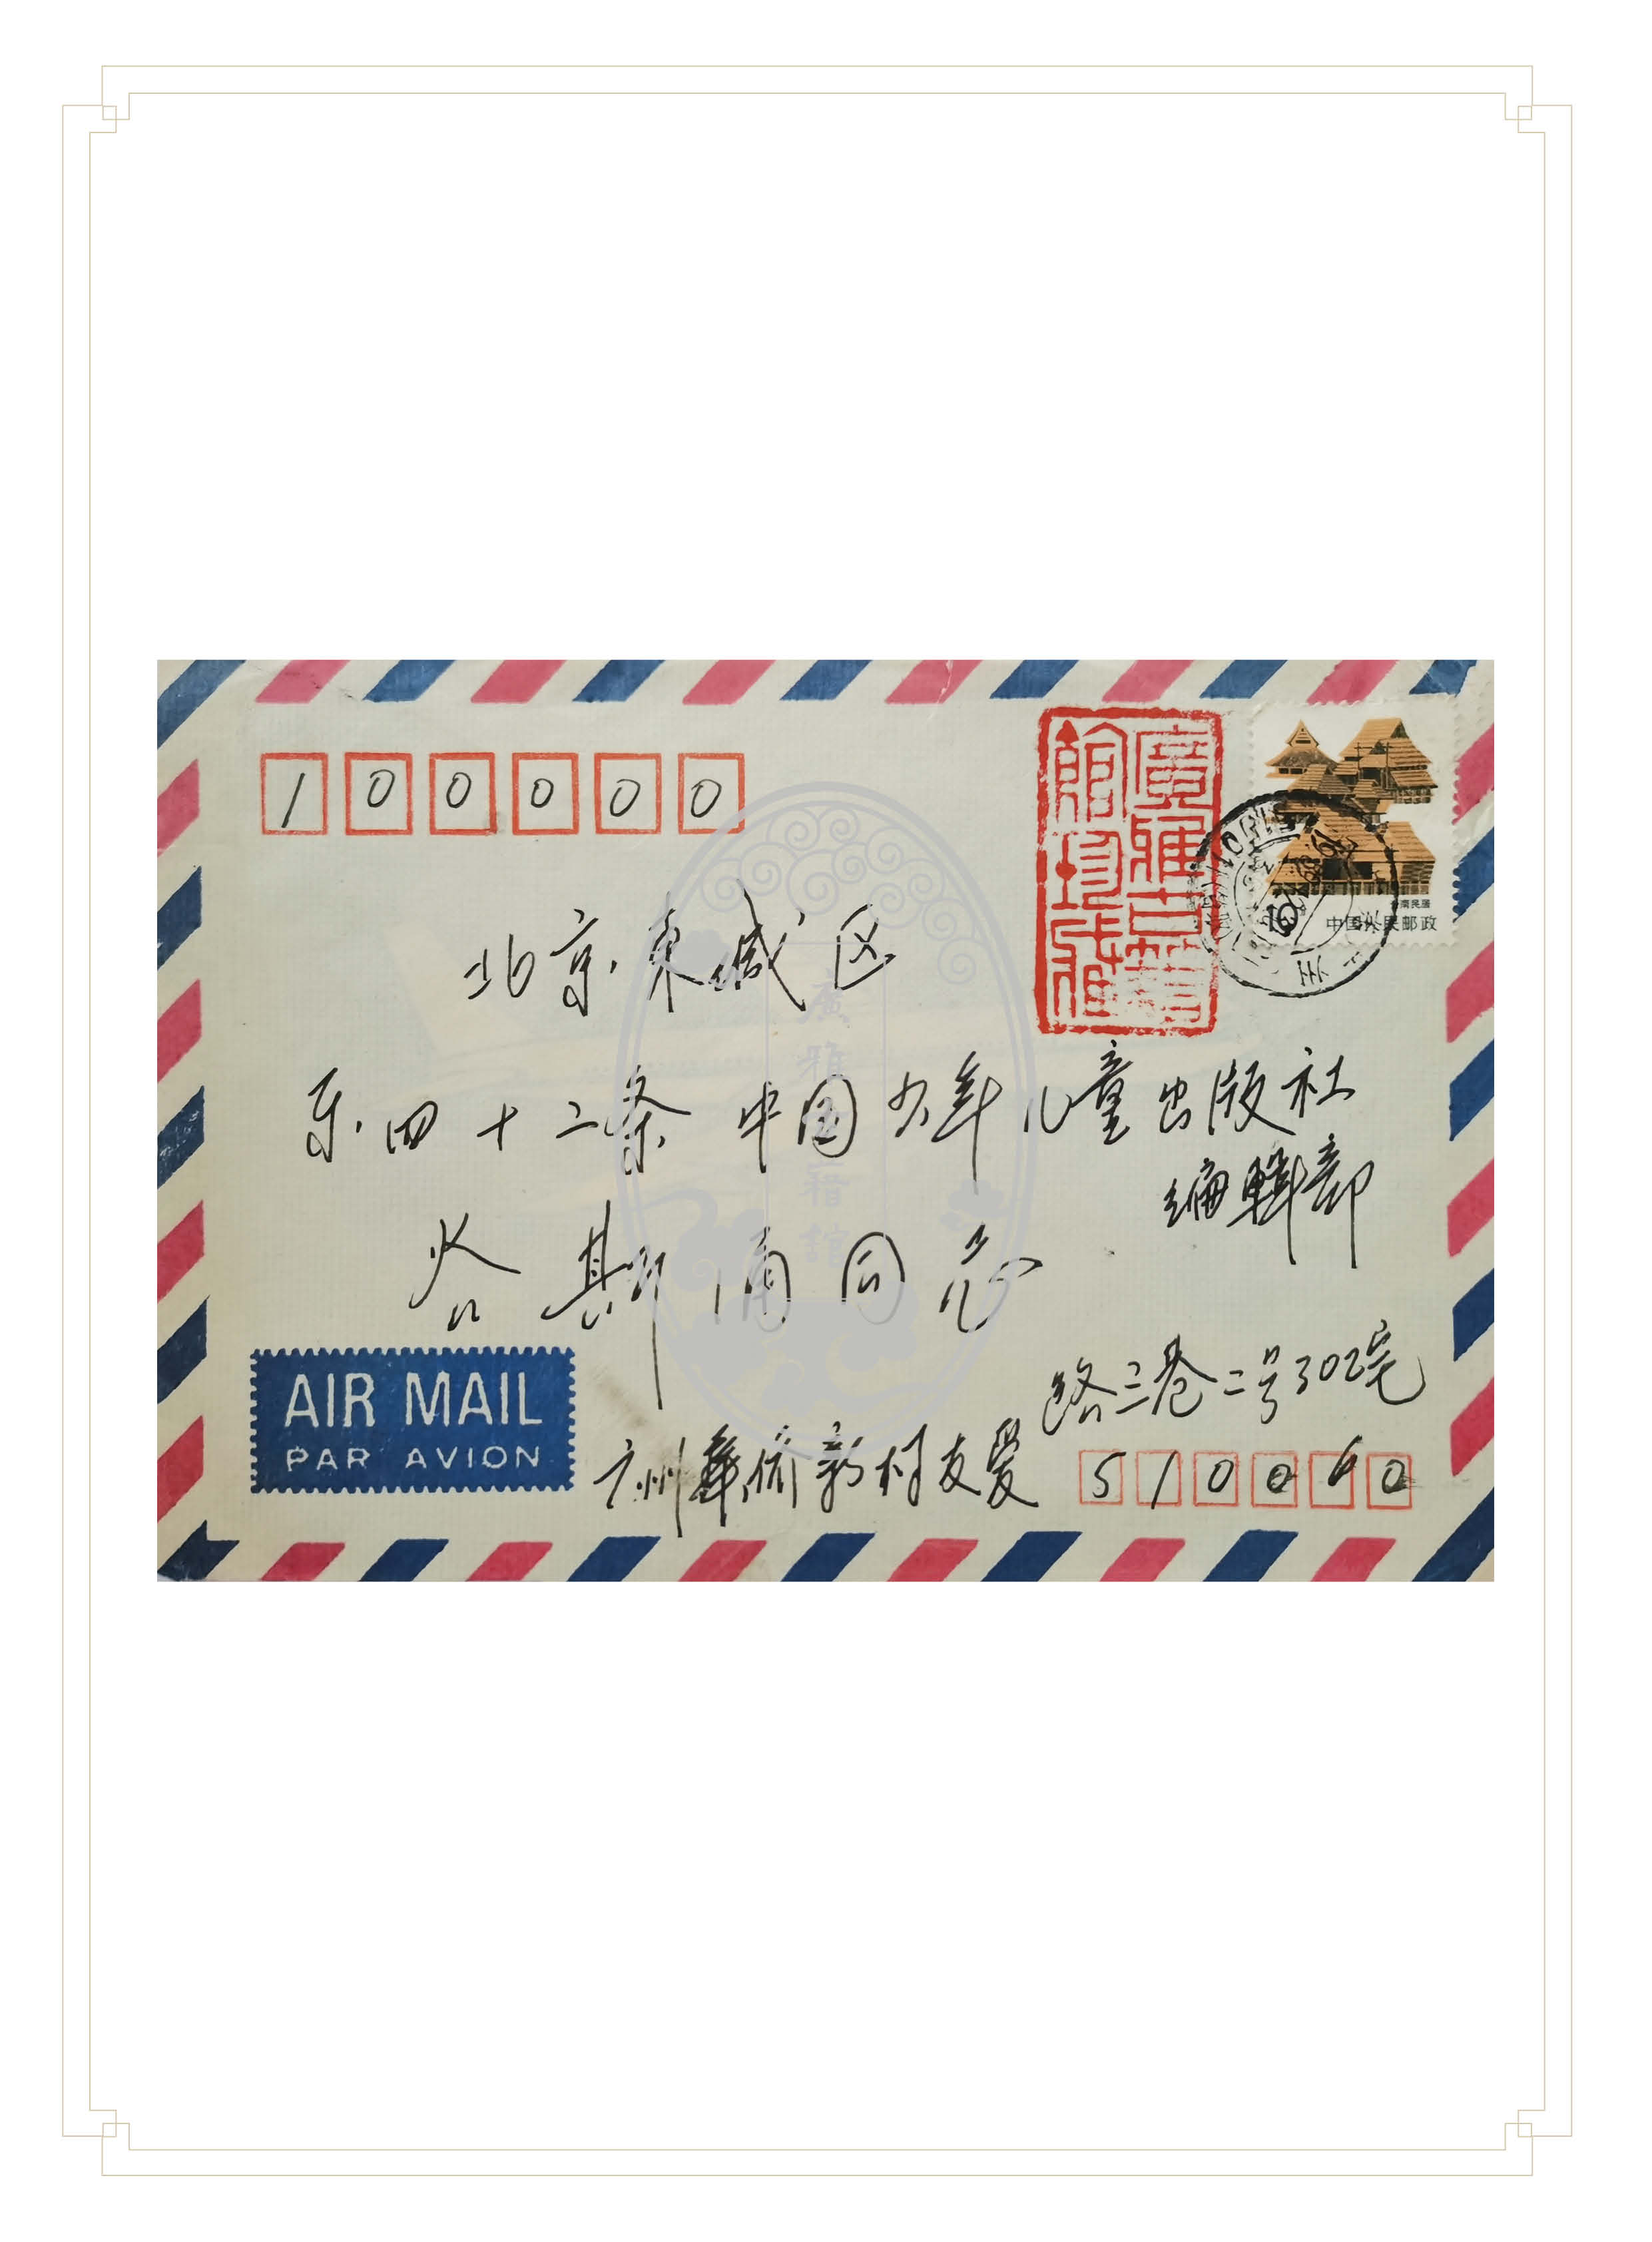 100000
廣雅古籍
館珍稚
北京东城区
云南民居
10
中国人民邮政
东四十二条 中国少年儿童出版社
编辑部
答斯甬同志
廣雅古籍館
AIR MAIL
PAR AVION
路三巷二号302宅
广州華侨新村友爱
510060